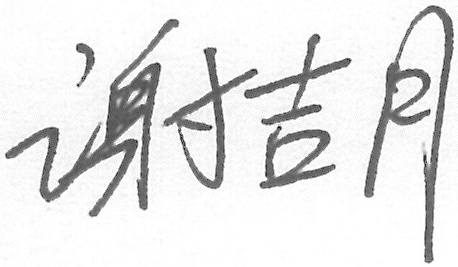 谢吉月